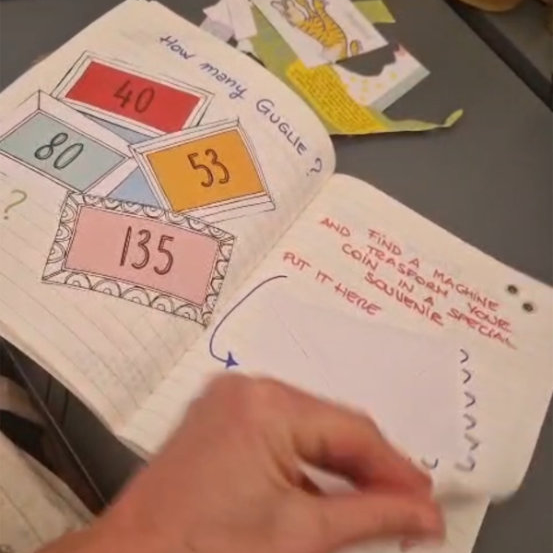 How many GUGLIE?
40
80
53
?
135
FIND A MACHINE
AND TRASFORM YOUR
COIN IN A SPECIAL
SOUVENIR
PUT IT HERE